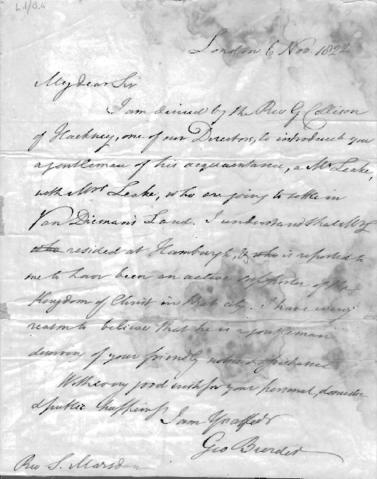 L.1/B.4
London 6 Nov. 1822
My dear Sir
I am desired by the Rev G Collison
of Hackney, one of our Directors, to introduce you
a gentleman of his acquaintance, a Mr Leake,
with Mrs Leake, who are going to settle in
Van Dieman's Land. I understand that Mr L
who resided at Hamburgh, & who is reported to
me to have been an active of the
Kingdom of Christ in that city. I have every
reason to believe that he is a gentleman
deserving of your friendly notice &
With every good wish for your personal, domestic
& public happiness
I am Yr affect
Geo Burder
Rev S. Marsden